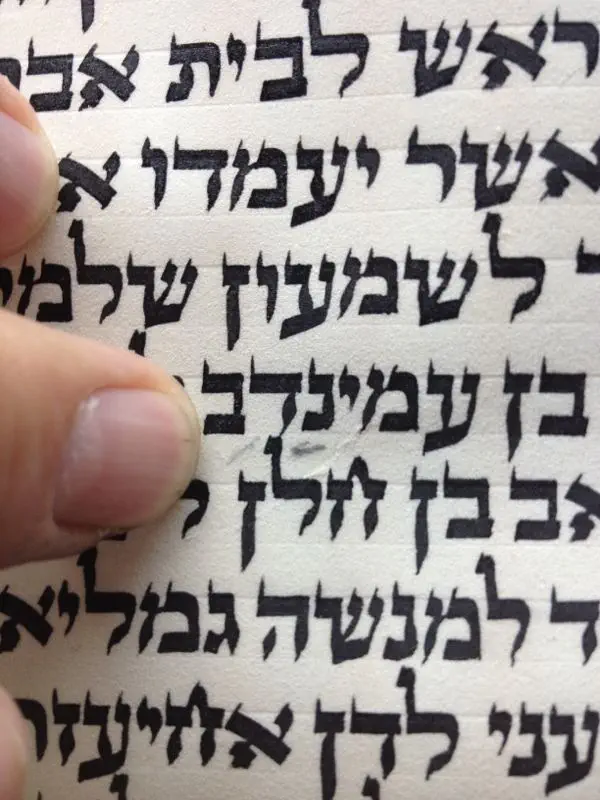 ראש לבית אב
אשר יעמדו א
לשמעון שלמי
בן עמינדב
אב בן חלן ל
ד למנשה גמליא
עני לדן אחיעזר